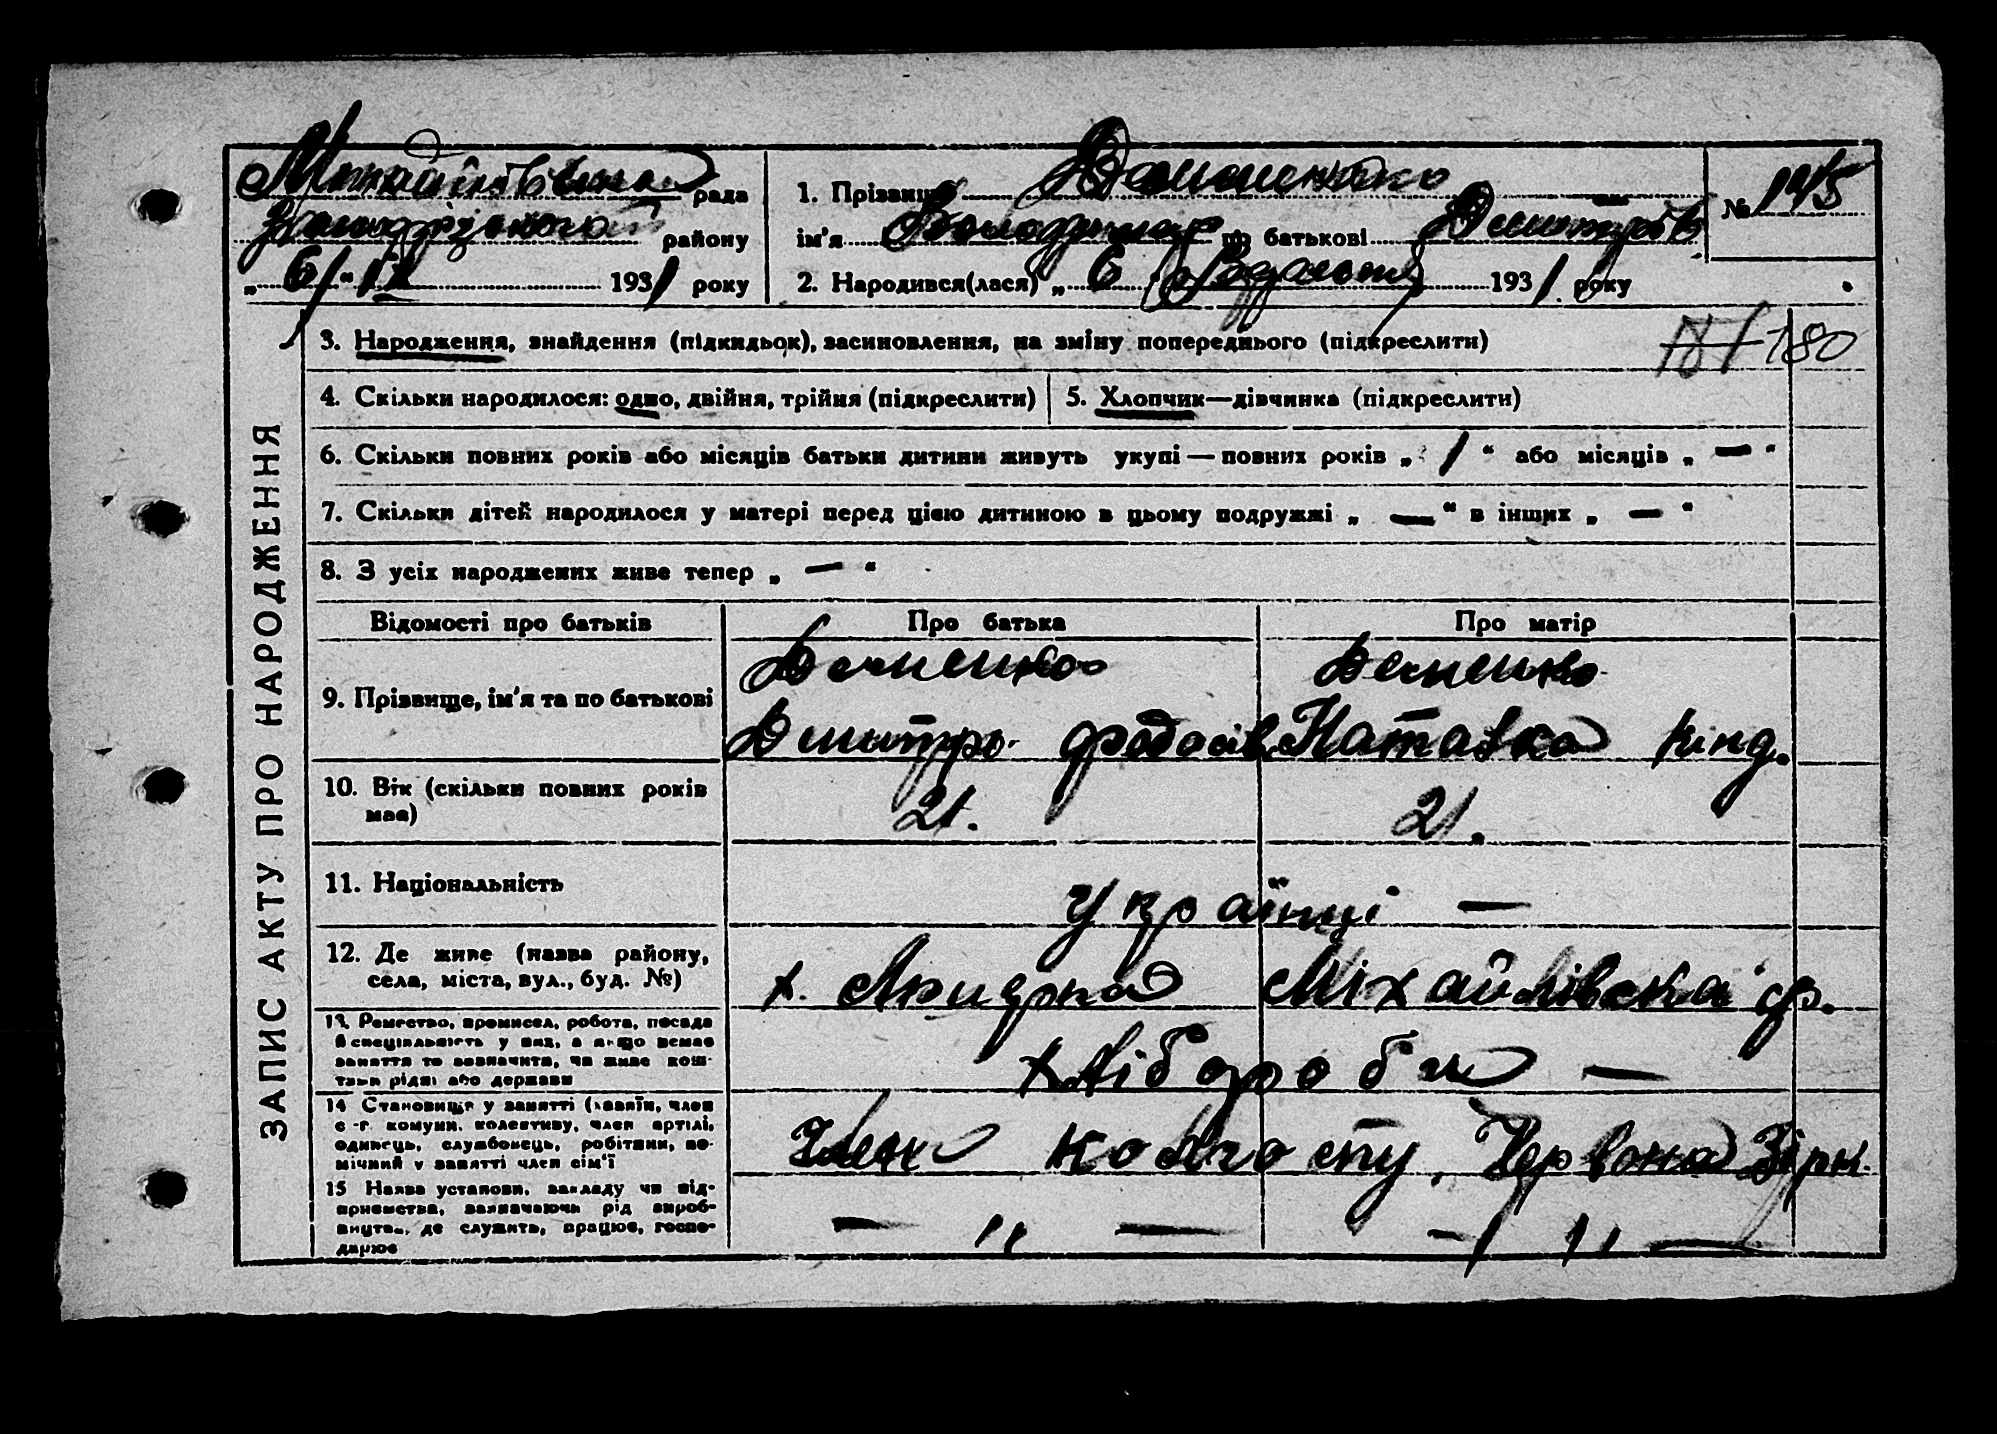 Михайлівська рада
району
„ 6 “ IX 1931 року
1. Прізвище
№ 145
ім'я Володимир по батькові Дмитрів
2. Народився(лася) „ 6 1931 року
3. Народження, знайдення (підкидьок), засиновлення, на зміну попереднього (підкреслити)
187 180
4. Скільки народилося: одно, двійня, трійня (підкреслити)
5. Хлопчик—дівчинка (підкреслити)
6. Скільки повних років або місяців батьки дитини живуть укупі — повних років „ 1 “ або місяців „ — “
7. Скільки дітей народилося у матері перед цією дитиною в цьому подружжі „ — “ в інших „ — “
8. З усіх народжених живе тепер „ — “
ЗАПИС АКТУ ПРО НАРОДЖЕННЯ
Відомості про батьків
Про батька
Про матір
9. Прізвище, ім'я та по батькові
Дмитро Федосів
Наталка Кінд.
10. Вік (скільки повних років має)
21.
21.
11. Національність
Українці —
12. Де живе (назва району,
села, міста, вул., буд. №)
х. Михайлівська ср.
13. Ремество, промисел, робота, посада
й спеціяльність у них, а якщо немає
заняття то зазначити, чи живе кош-
тами рідні або держави
Хлібороби —
14 Становище у занятті (хазяїн, член
с.-г. комуни, колективу, член артілі,
одинець, службовець, робітник, по-
мічний у занятті член сім'ї
Член колгоспу, Червона Зірк.
15 Назва установи, закладу чи під-
приємства, зазначаючи рід вироб-
ництва, де служить, працює, госпо-
дарює
— „ —
— „ —